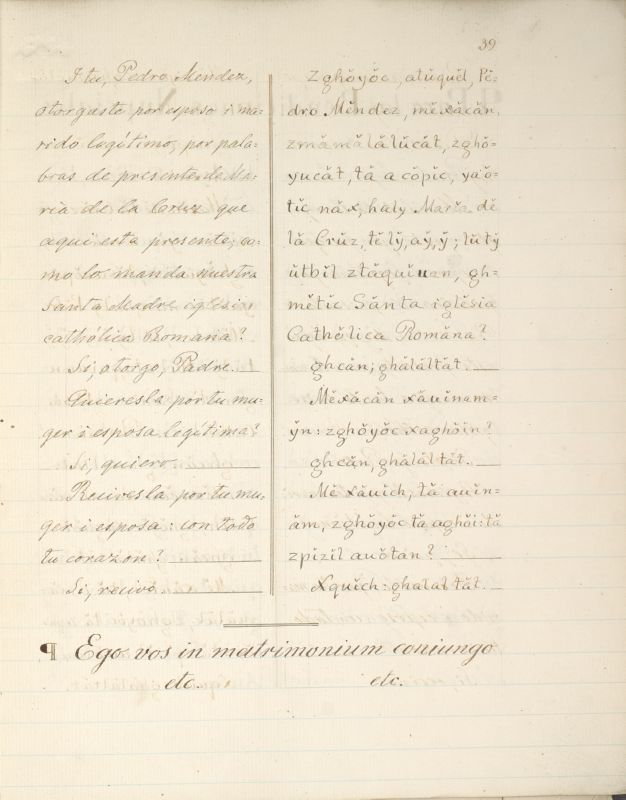 39
I tu, Pedro Mendez,
otorgaste por esposo i ma=
rido legítimo, por pala=
bras de presente, de Ma=
ria de la Cruz que
aqui esta presente; co=
mo lo manda nuestra
Santa Madre iglesia
cathólica Romana?
Si, otorgo, Padre.
Quieresla por tu mu=
ger i esposa legítima?
Si, quiero.
Recivesla por tu mu=
ger i esposa: con todo
tu corazon?
Si, recivo.
Zghŏyŏc, atŭquĕl, Pĕ=
dro Mĕndez, mĕxăcăn,
zmămălălŭcăt, zghŏ=
yucăt, tă a cŏpĭc, yaŏ=
tĭc năx, haly Marĭa dĕ
lă Crŭz, tĕlў, aў, ў; lŭtў
ŭtbĭl ztăquĭuan, gh=
mĕtĭc Sănta iglĕsia
Cathŏlica Romăna?
ghcăn; ghălăltăt.
Mĕxăcăn xăuĭnam=
ўn: zghŏyŏc xaghŏin?
ghcăn, ghălăltăt.
Mĕ xăuĭch, tă auĭn=
ăm, zghŏyŏc tă, aghŏi: tă
zpĭzĭl auŏtan?
Xquĭch: ghalaltăt.
¶ Ego vos in matrimonium coniungo
etc. etc.